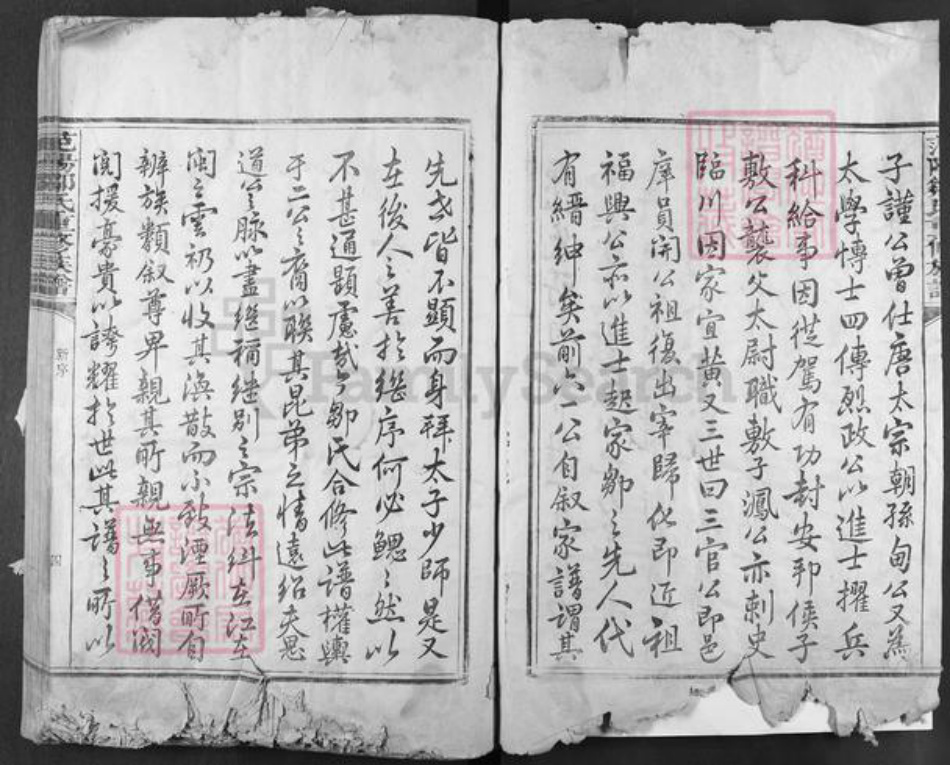 子謹公曾仕唐太宗朝孫甸公又為
太學博士四傳烈政公以進士擢兵
科給事因從駕有功封安邦侯子
敷公襲父太尉職敷子渢公亦刺史
臨川因家宜黃又三世曰三官公即邑
庠員開公祖復出宰歸化即近祖
福興公亦以進士起家鄒之先人代
有縉紳矣前六一公自叙家譜謂其
先世皆不顯而身拜太子少師是又
在後人之善於繼序何必鰓鰓然以
不甚通顯慮哉今鄒氏合修此譜權輿
于二公之裔以聯其昆弟之情遠紹夫思
道公之脉以盡繼禰继别之宗法糾在江在
閩之雲礽以收其渙散而不致湮厥所自
辨族類叙尊卑親其所親無事借閥
閱援豪貴以誇耀於世此其譜之所以
范陽鄒氏重修族譜
新序
四
FamilySearch